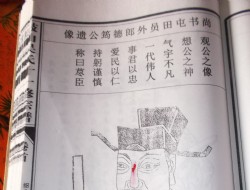 尚书屯田员外郎德筠公遗像
观公之像
想公之神
气宇不凡
一代伟人
事君以忠
爱民以仁
持躬谨慎
称曰荩臣